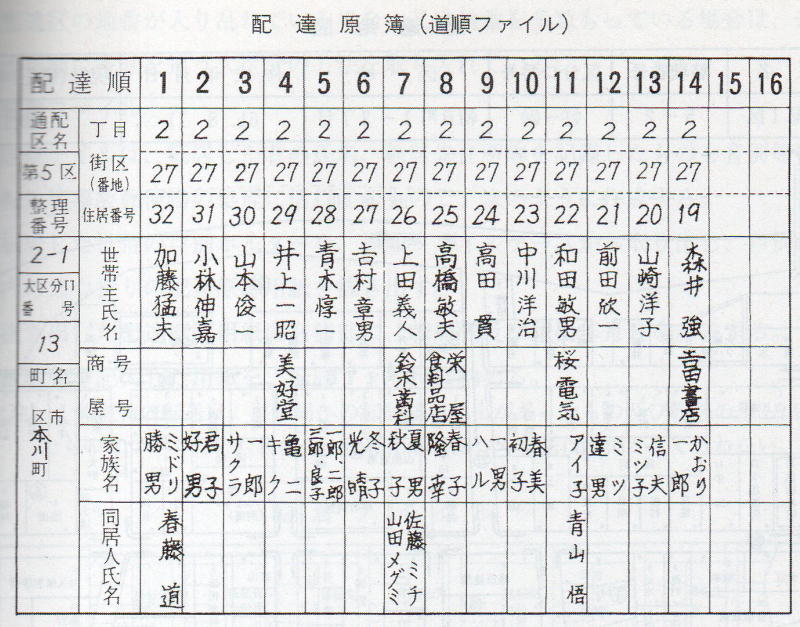 配達原簿(道順ファイル)
配達順 1 2 3 4 5 6 7 8 9 10 11 12 13 14 15 16
通配区名 丁目 2 2 2 2 2 2 2 2 2 2 2 2 2 2
第5区 街区(番地) 27 27 27 27 27 27 27 27 27 27 27 27 27 27
整理番号 住居番号 32 31 30 29 28 27 26 25 24 23 22 21 20 19
2-1
大区分口番号
13
町名
区市
本川町
世帯主氏名
加藤猛夫
小林伸嘉
山本俊一
井上一昭
青木惇一
吉村章男
上田義人
高橋敏夫
高田貫
中川洋治
和田敏男
前田欣一
山崎洋子
森井強
商号屋号
美好堂
鈴木歯科
栄屋
食料品店
桜電気
吉田書店
家族名
ミドリ
勝男
君子
好男
一郎
サクラ
亀二
キク
一郎、二郎
三郎、良子
冬子
光晴
夏男
秋子
春子
隆幸
一男
ハル
春美
初子
アイ子
ミツ
達男
信夫
ミツ子
かおり
郎
同居人氏名
春藤道
佐藤ミチ
山田メグミ
青山悟